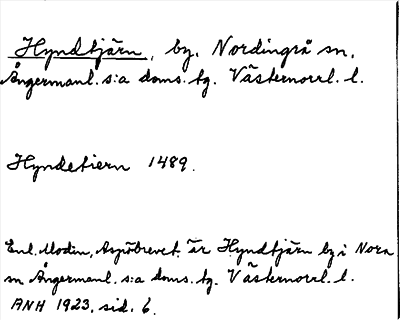 Hyndtjärn, by, Nordingrå sn,
Ångermanl. s:a doms. tg. Västernorrl. l.
Hyndetiern 1489.
Enl. Modin, Aspåbrevet, är Hyndtjärn by i Nora
sn Ångermanl. s:a doms. tg. Västernorrl. l.
ANH 1923, sid. 6.